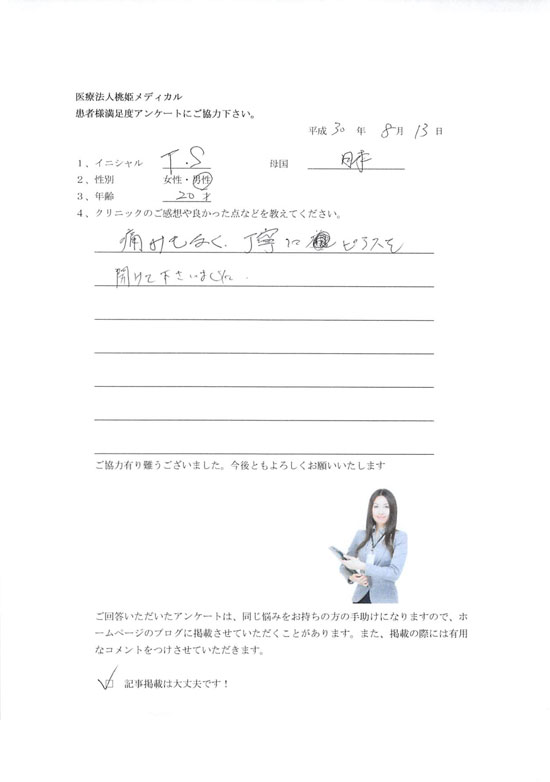 医療法人桃姫メディカル
患者様満足度アンケートにご協力下さい。
平成 30 年 8月 13 日
1、イニシャル T.S 母国 日本
2、性別 女性・男性
3、年齢 20才
4、クリニックのご感想や良かった点などを教えてください。
痛みもなく、丁寧に ピアスを
開けて下さいました.
ご協力有り難うございました。今後ともよろしくお願いいたします
ご回答いただいたアンケートは、同じ悩みをお持ちの方の手助けになりますので、ホ
ームページのブログに掲載させていただくことがあります。また、掲載の際には有用
なコメントをつけさせていただきます。
記事掲載は大丈夫です！